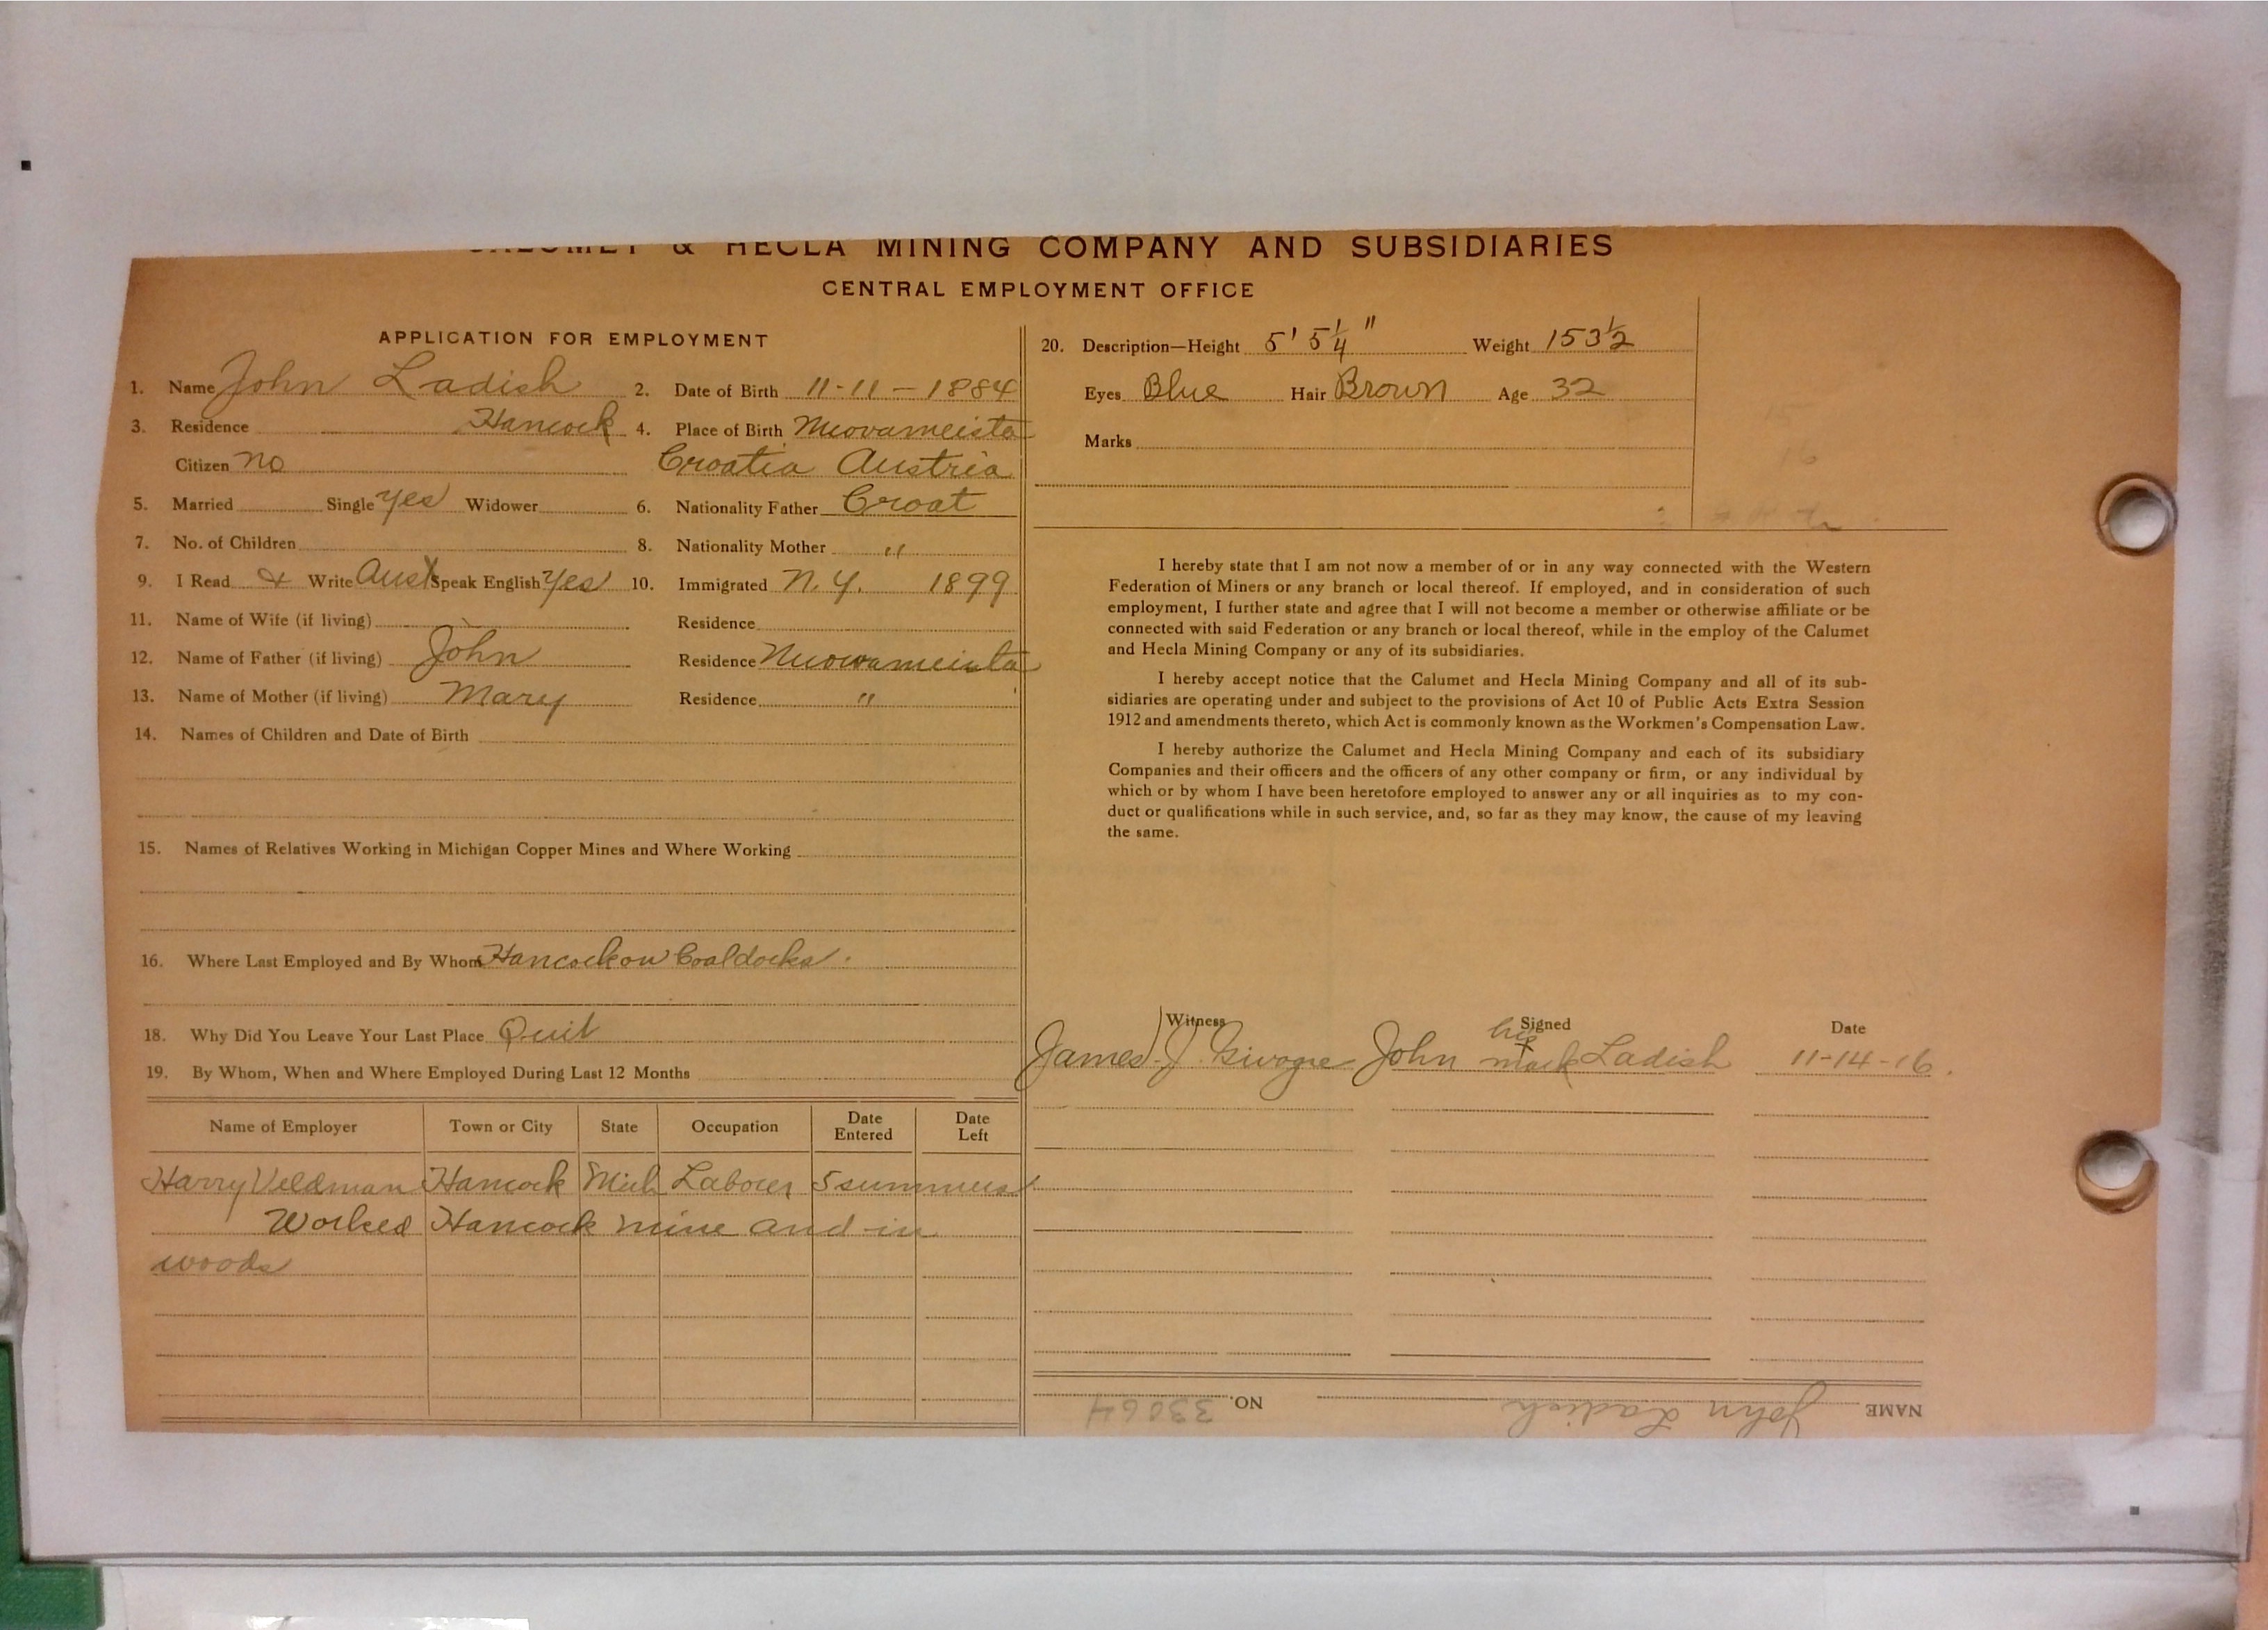 CALUMET & HECLA MINING COMPANY AND SUBSIDIARIES
CENTRAL EMPLOYMENT OFFICE
APPLICATION FOR EMPLOYMENT
1. Name John Ladish 2. Date of Birth 11-11-1884
3. Residence Hancock 4. Place of Birth
Citizen no Croatia Austria
5. Married Single yes Widower 6. Nationality Father Croat
7. No. of Children 8. Nationality Mother "
9. I Read & Write Aust Speak English Yes 10. Immigrated N.Y. 1899
11. Name of Wife (if living) Residence
12. Name of Father (if living) John Residence
13. Name of Mother (if living) Mary Residence "
14. Names of Children and Date of Birth
15. Names of Relatives Working in Michigan Copper Mines and Where Working
16. Where Last Employed and By Whom Hancock on Coaldocks.
18. Why Did You Leave Your Last Place Quit
19. By Whom, When and Where Employed During Last 12 Months
Name of Employer Town or City State Occupation Date Entered Date Left
Harry Veldman Hancock Mich Labour 5 summers
Worked Hancock mine and in
woods
20. Description—Height 5' 5 1/4" Weight 153 1/2
Eyes Blue Hair Brown Age 32
Marks
I hereby state that I am not now a member of or in any way connected with the Western
Federation of Miners or any branch or local thereof. If employed, and in consideration of such
employment, I further state and agree that I will not become a member or otherwise affiliate or be
connected with said Federation or any branch or local thereof, while in the employ of the Calumet
and Hecla Mining Company or any of its subsidiaries.
I hereby accept notice that the Calumet and Hecla Mining Company and all of its sub-
sidiaries are operating under and subject to the provisions of Act 10 of Public Acts Extra Session
1912 and amendments thereto, which Act is commonly known as the Workmen's Compensation Law.
I hereby authorize the Calumet and Hecla Mining Company and each of its subsidiary
Companies and their officers and the officers of any other company or firm, or any individual by
which or by whom I have been heretofore employed to answer any or all inquiries as to my con-
duct or qualifications while in such service, and, so far as they may know, the cause of my leaving
the same.
Witness Signed Date
James J. John his x mark Ladish 11-14-16.
NAME John Ladish NO. 33064